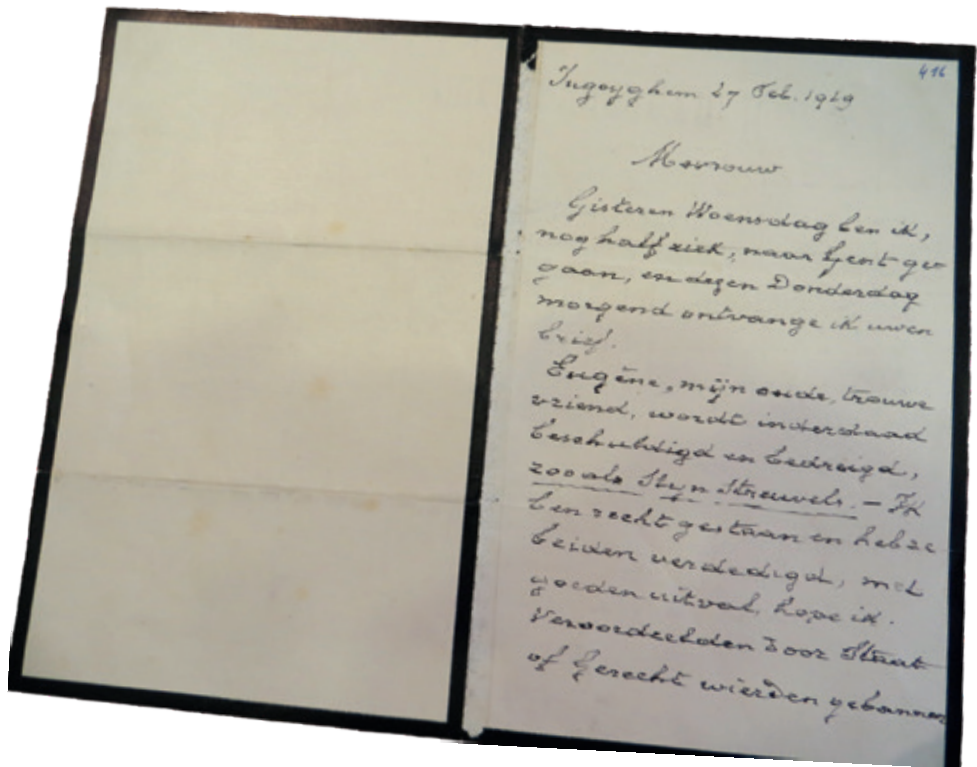 416
Ingoyghem 27 Feb. 1919
Mevrouw
Gisteren Woensdag ben ik,
nog half ziek, naar Gent ge-
gaan, en dezen Donderdag
morgend ontvange ik uwen
brief.
Eugène, mijn oude, trouwe
vriend, wordt inderdaad
beschuldigd en bedreigd,
zooals Styn Streuvels. – Ik
ben recht gestaan en heb ze
beiden verdedigd, met
goeden uitval, hope ik.
Veroordeelden door Staat
of Gerecht wierden gebannen